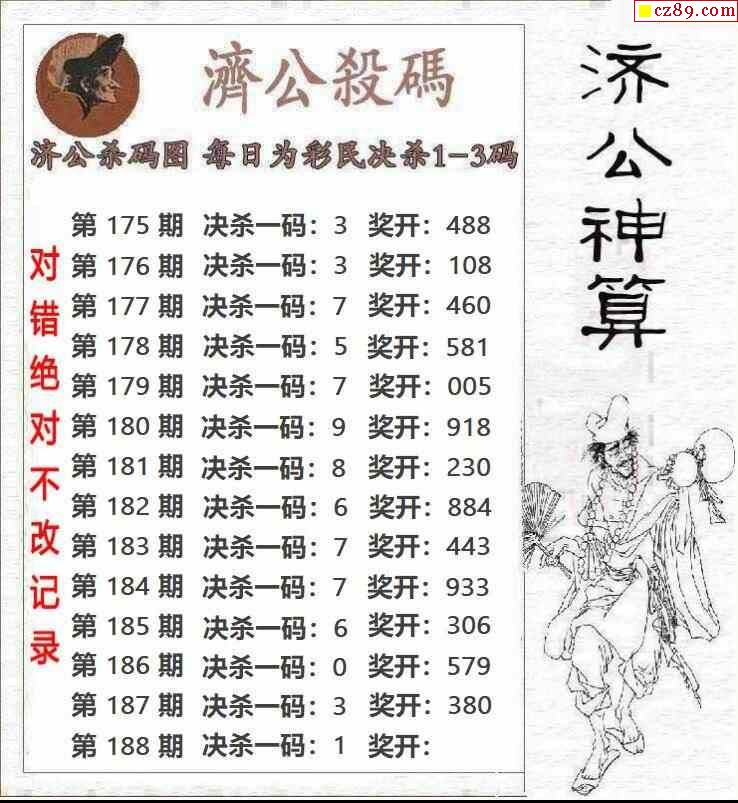 cz89.com
濟公殺碼
济公杀码图 每日为彩民决杀1-3码
第 175 期 决杀一码：3 奖开：488
第 176 期 决杀一码：3 奖开：108
第 177 期 决杀一码：7 奖开：460
第 178 期 决杀一码：5 奖开：581
第 179 期 决杀一码：7 奖开：005
第 180 期 决杀一码：9 奖开：918
第 181 期 决杀一码：8 奖开：230
第 182 期 决杀一码：6 奖开：884
第 183 期 决杀一码：7 奖开：443
第 184 期 决杀一码：7 奖开：933
第 185 期 决杀一码：6 奖开：306
第 186 期 决杀一码：0 奖开：579
第 187 期 决杀一码：3 奖开：380
第 188 期 决杀一码：1 奖开：
对错绝对不改记录
济公神算